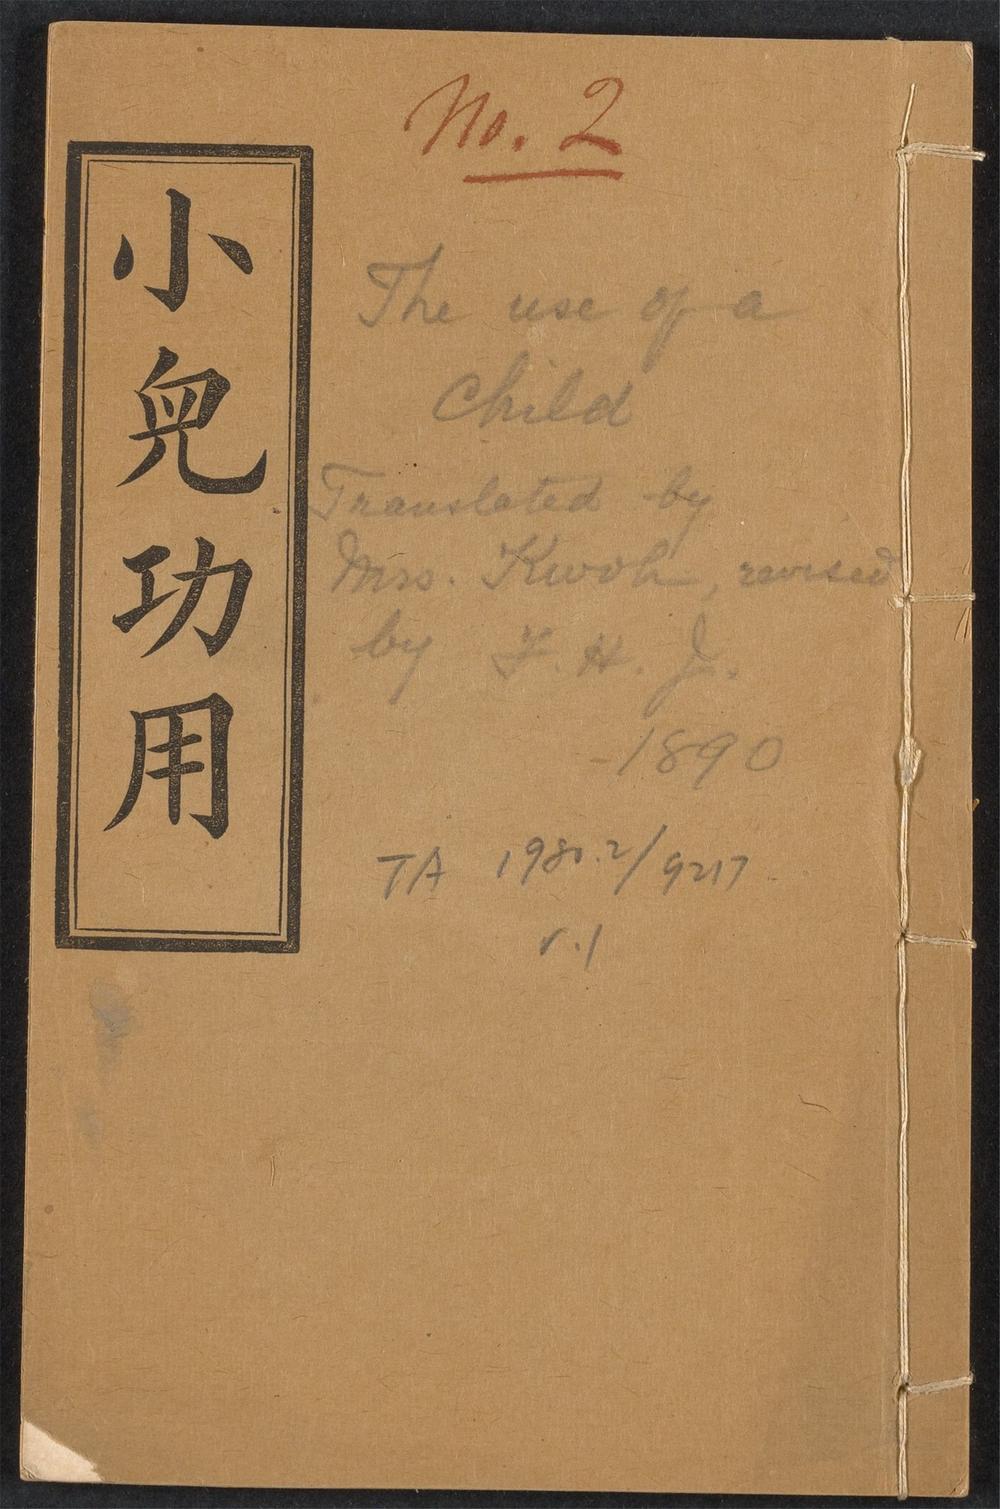 No. 2
小兒功用
The use of a
child
Translated by
Mrs. Kwoh, revised
by Y. H. J.
1890
TA 1980.2/9217
v.1